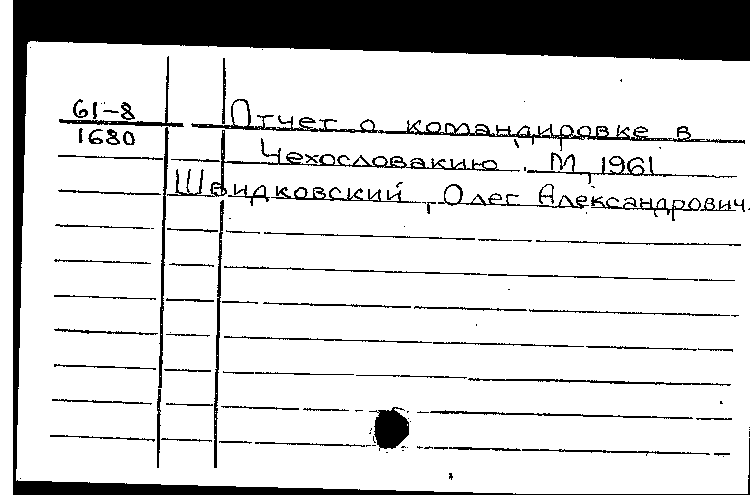 61-8
1680
Отчет о командировке в
Чехословакию. М, 1961
Швидковский, Олег Александрович.